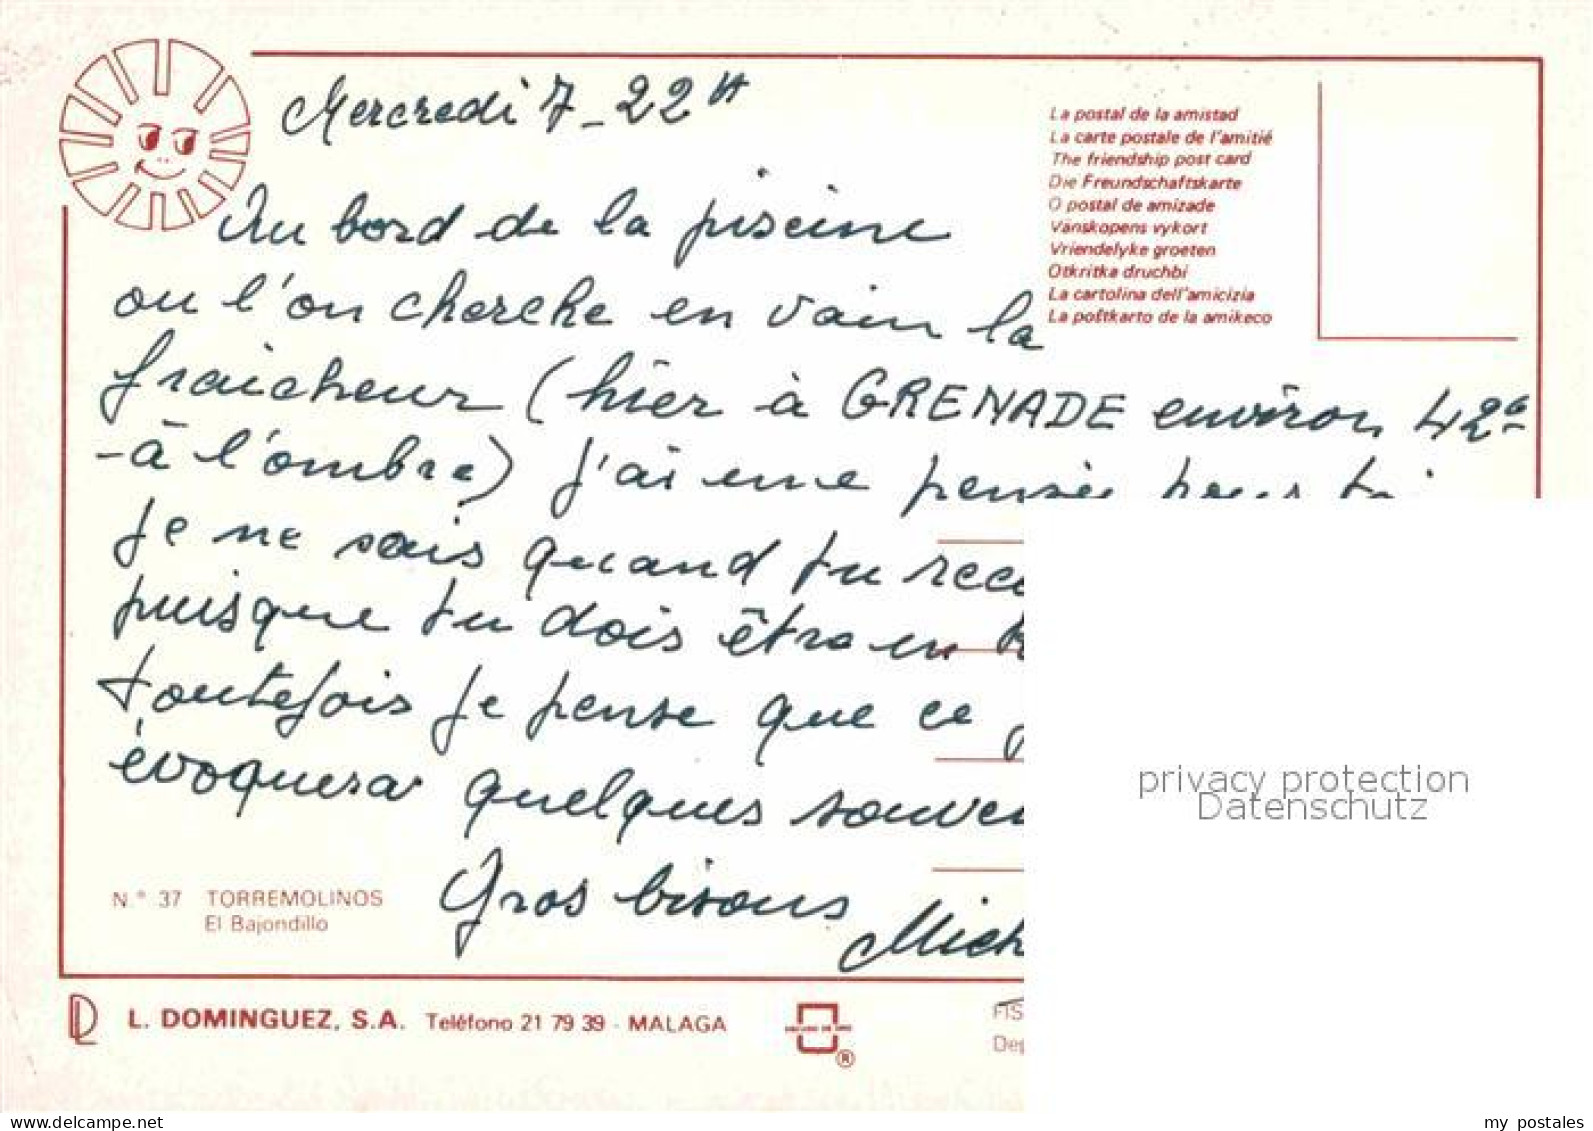 Mercredi 7 - 22H
La postal de la amistad
La carte postale de l'amitié
The friendship post card
Die Freundschaftskarte
O postal de amizade
Vänskopens vykort
Vriendelyke groeten
Otkritka druchbi
La cartolina dell'amicizia
La poŝtkarto de la amikeco
Au bord de la piscine
ou l'on cherche en vain la
fraicheur (hier à GRENADE environ 42°
- à l'ombre) j'ai une pensée pour toi
Je ne sais quand tu rece
puisque tu dois être en
toutefois je pense que ce
évoquera quelques souven
Gros bisous
Mich
N.° 37 TORREMOLINOS
El Bajondillo
L. DOMINGUEZ, S.A. Teléfono 21 79 39 - MALAGA
®
FIS
Dep
privacy protection
Datenschutz
oldthing.de
my postales